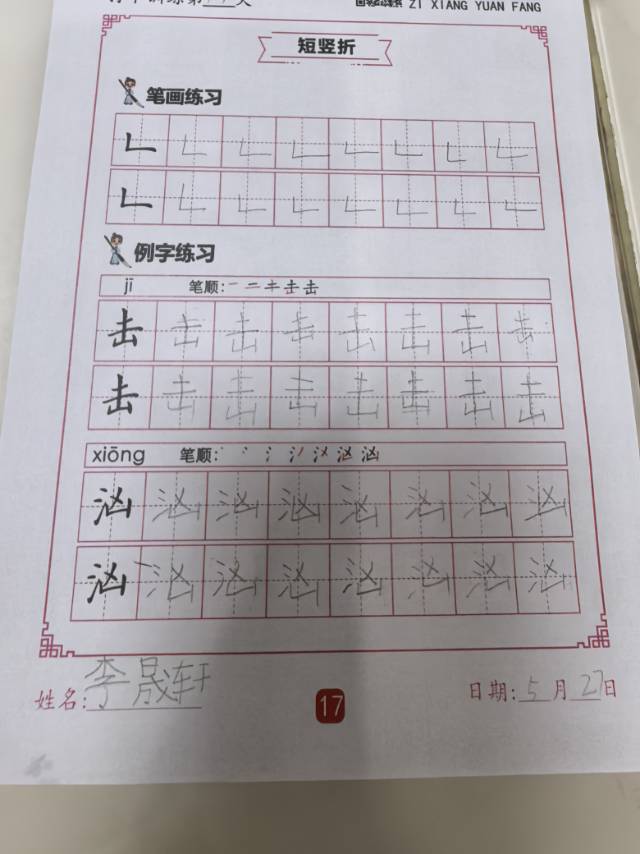 ZI XIANG YUAN FANG
短竖折
笔画练习
例字练习
jī 笔顺:一 二 キ 击 击
击 击 击 击 击 击 击 击
击 击 击 击 击 击 击 击
xiōng 笔顺:
汹 汹 汹 汹 汹 汹 汹 汹
汹 汹 汹 汹 汹 汹 汹 汹
姓名:李晟轩 17 日期:5月27日